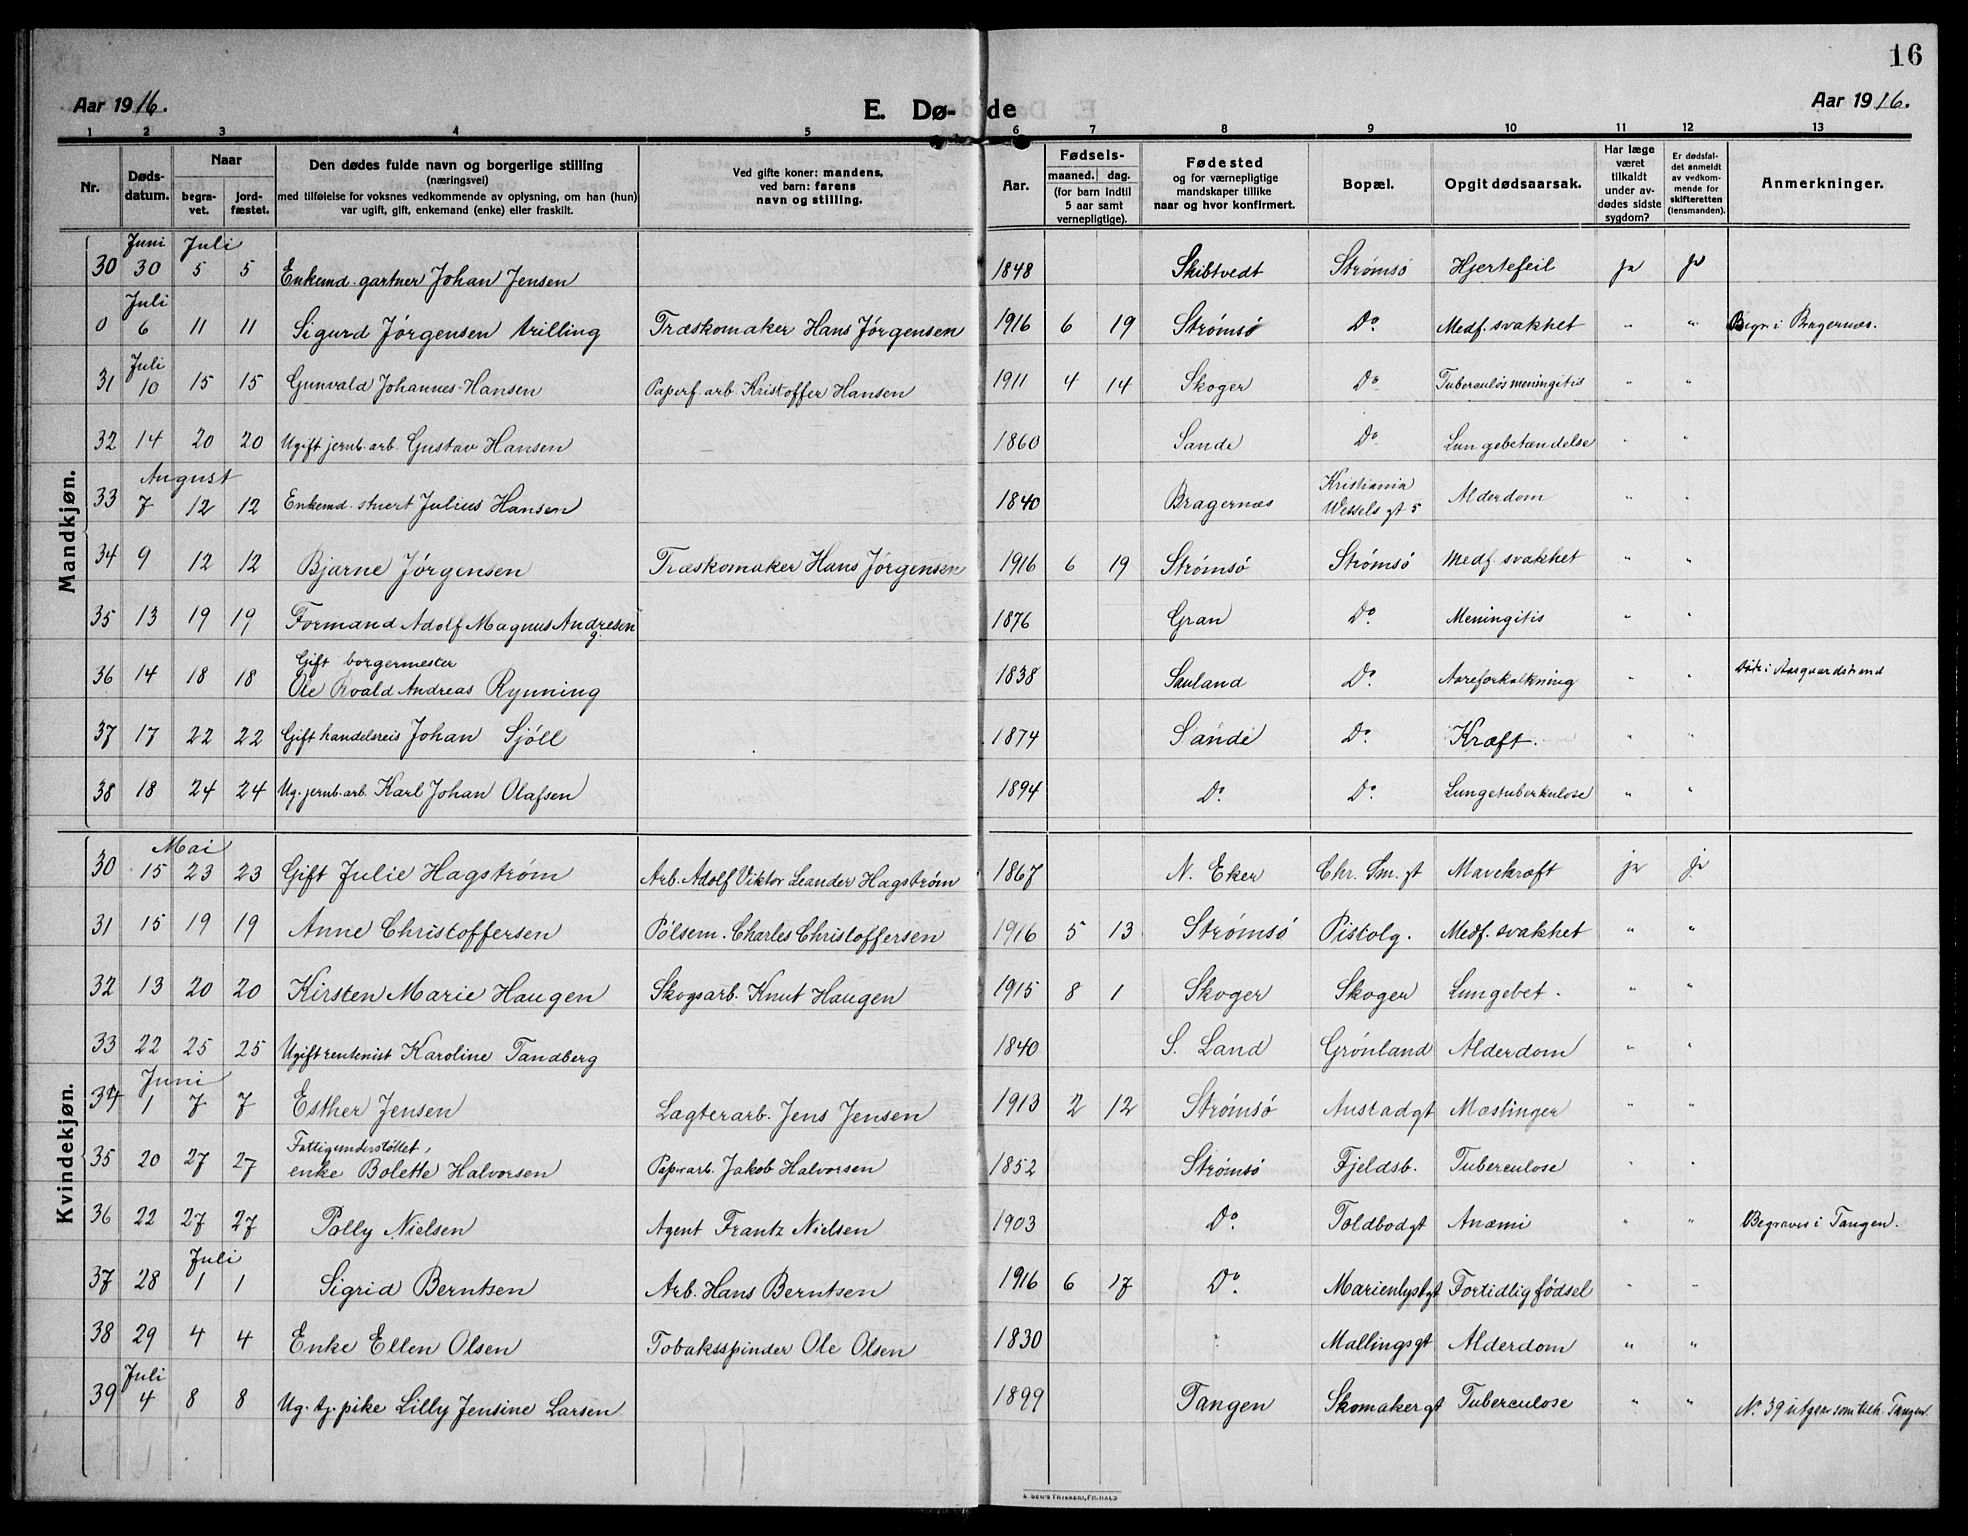 16
Aar 1916. E. Dø- de Aar 1916.
1 2 3 4 5 6 7 8 9 10 11 12 13
Nr. Dødsdatum. Naar begravet. jordfæstet. Den dødes fulde navn og borgerlige stilling (næringsvei) med tilføielse for voksnes vedkommende av oplysning, om han (hun) var ugift, gift, enkemand (enke) eller fraskilt. Ved gifte koner: mandens, ved barn: farens navn og stilling. Aar. Fødsels- maaned. dag. (for barn indtil 5 aar samt vernepligtige). Fødested og for værnepligtige mandskaper tillike naar og hvor konfirmert. Bopæl. Opgit dødsaarsak. Har læge været tilkaldt under avdødes sidste sygdom? Er dødsfaldet anmeldt av vedkommende for skifteretten (lensmanden). Anmerkninger.
Mandkjøn.
Juni Juli
30 30 5 5 Enkemd. gartner Johan Jensen 1848 Skibtvedt Strømsø Hjertefeil ja ja
Juli
0 6 11 11 Sigurd Jørgensen trilling Træskomaker Hans Jørgensen 1916 6 19 Strømsø Do Medf. svakhet " " Begr. i Bragernæs.
Juli
31 10 15 15 Gunvald Johannes Hansen Paperf. arb. Kristoffer Hansen 1911 4 14 Skoger Do Tuberculøs meningitis " "
32 14 20 20 Ugift jernb. arb. Gustav Hansen 1860 Sande Do Lungebetændelse " "
August
33 7 12 12 Enkemd. stuert Julius Hansen 1840 Bragernæs Kristiania Wessels gt 5 Alderdom " "
34 9 12 12 Bjarne Jørgensen Træskomaker Hans Jørgensen 1916 6 19 Strømsø Strømsø Medf. svakhet " "
35 13 19 19 Formand Adolf Magnus Andresen g. 1876 Gran Do. Meningitis " "
36 14 18 18 Gift borgermester
Ole Roald Andreas Rynning 1838 Sauland Do. Aareforkalkning " " Døde i Aasgaardstrand
37 17 22 22 Gift handelsreis Johan Sjöll 1874 Sande Do. Kræft. " "
38 18 24 24 Ug. jernb. arb. Karl Johan Olafsen 1894 Do. Do. Lungetuberkulose " "
Kvindekjøn.
Mai
30 15 23 23 Gift Julie Hagstrøm Arb. Adolf Viktor Leander Hagstrøm 1867 N. Eker Chr. Sm. gt Mavekræft ja ja
31 15 19 19 Anne Christoffersen Pølsem. Charles Christoffersen 1916 5 13 Strømsø Pistolg. Medf. svakhet " "
32 13 20 20 Kirsten Marie Haugen Skogsarb. Knut Haugen 1915 8 1 Skoger Skoger Lungebet. " "
33 22 25 25 Ugift rentenist Karoline Tandberg 1840 S. Land Grønland Alderdom " "
Juni
34 1 7 7 Esther Jensen Lagterarb. Jens Jensen 1913 2 12 Strømsø Austadgt Mæslinger " "
35 20 27 27 Fattigunderstøttet,
enke Bolette Halvorsen Papirarb. Jakob Halvorsen 1852 Strømsø Fjeldsb. Tuberculose " "
36 22 27 27 Polly Nielsen Agent Frantz Nielsen 1903 Do. Toldbodgt Anæmi " " Begraves i Tangen.
Juli
37 28 1 1 Sigrid Berntsen Arb. Hans Berntsen 1916 6 17 Do Marienlystgt Fortidlig fødsel " "
38 29 4 4 Enke Ellen Olsen Tobaksspinder Ole Olsen 1830 " Mallingsgt Alderdom " "
Juli
39 4 8 8 Ug. tj. pike Lilly Jensine Larsen 1899 Tangen Skomakergt Tuberculose " " N. 39 utgaar som tilh. Tangen.